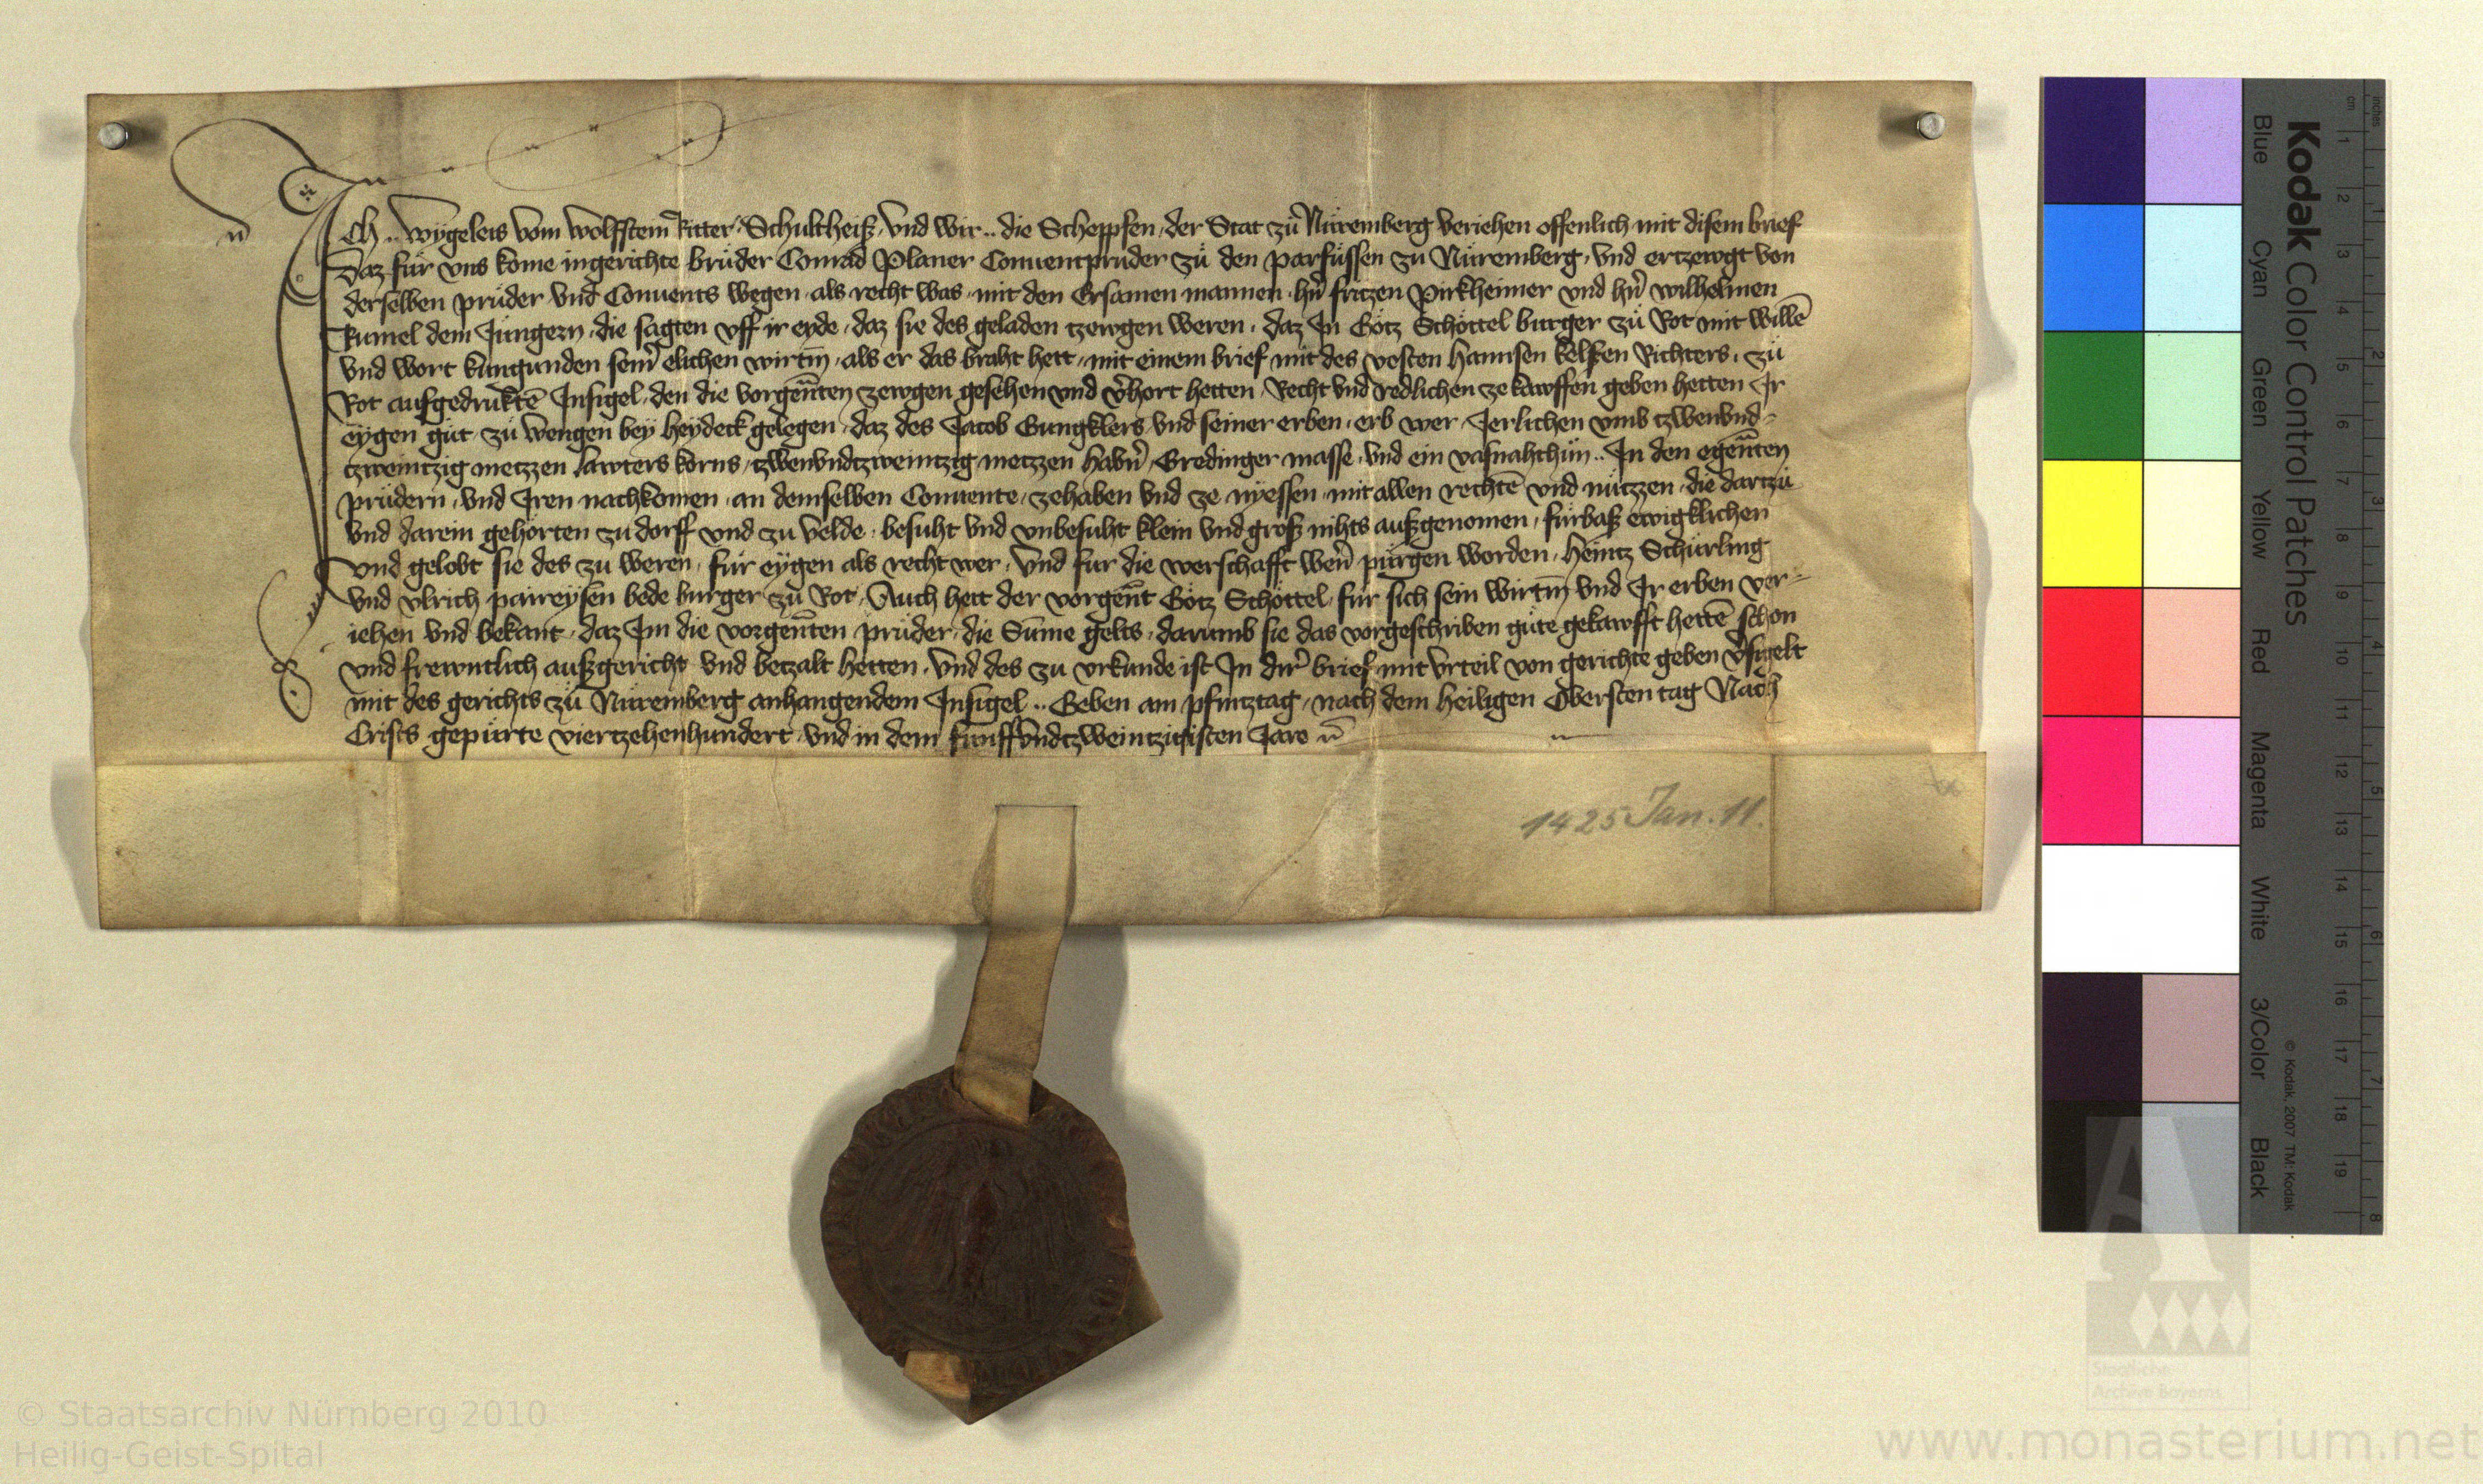 Ich .. Wygeleis vom Wolffstein Ritter Schultheiß und wir .. die Scheppfen der Stat zu Nüremberg veriehen offenlich mit disem brief
Daz für uns kome in gerichte brüder Conrad Planer Conventprüder zü den parfüssen zu Nüremberg, und ertzewgt von
derselben prüder und Convents wegen als recht was mit den Ersamen mannen hern fritzen Pirkheimer und hern wilhelmen
Rumel dem Jüngern, die sagten uff ir eyde, daz sie des geladen tzewgen weren, daz In Götz Schöttel burger zü Rot mit willē
und wort kungunden seinr elichen wirtin, als er das braht hett, mit einem brief mit des vesten hannsen kelsken Richters, zü
Rot aufgedruktē Insigel, den die vorgenñten zewgen gesehen und v̄hort hetten, Recht und redlichen ze kawffen geben hetten Ir
eygen güt zü Wengen bey heydeck gelegen, daz des Jacob Gungklers und seiner erben, erb wer, Jerlichen umb tzwenund-
tzweintzig metzzen lawters korns, tzwenundtzweintzig metzzen habern, Gredinger masse, und ein vasnahthün .. In den egenñten
prüdern, und Iren nachkomen, an demselben Convente, zehaben und ze nyessen, mit allen rechtē und nützzen, die dartzü
und darein gehörten zu dorff und zu velde, besuht und unbesuht klein und groß nihts außgenomen, fürbaß ewigklichen
Und gelobt sie des zu weren, für eygen als recht wer, Und für die werschafft wern pürgen worden, heintz Schürling
und ulrich paireysen bede burger zü Rot, Auch hett der vorgenñt Götz Schöttel, für sich sein wirtin und Ir erben ver-
iehen und bekant, daz Im die vorgenñten prüder, die Süme gelts, darumb sie das vorgeschriben güte gekawfft hettē schon
und frewntlich außgericht und betzalt hetten, Und des zu urkunde ist In dirr brief mit urteil von gerichte geben v̄sigelt
mit des gerichts zü Nüremberg anhangendem Insigel .. Geben am pfintztag, nach dem heiligen Obersten tag Nach
Crists gepürte viertzehenhundert, und in dem fünffundtzweintzigisten Jare
1425 Jan. 11.
Kodak Color Control Patches
Blue Cyan Green Yellow Red Magenta White 3/Color Black
© Kodak, 2007 TM: Kodak
cm 1 2 3 4 5 6 7 8 9 10 11 12 13 14 15 16 17 18 19
inches 1 2 3 4 5 6 7 8
Staatliche
Archive Bayerns
© Staatsarchiv Nürnberg 2010
Heilig-Geist-Spital
www.monasterium.net